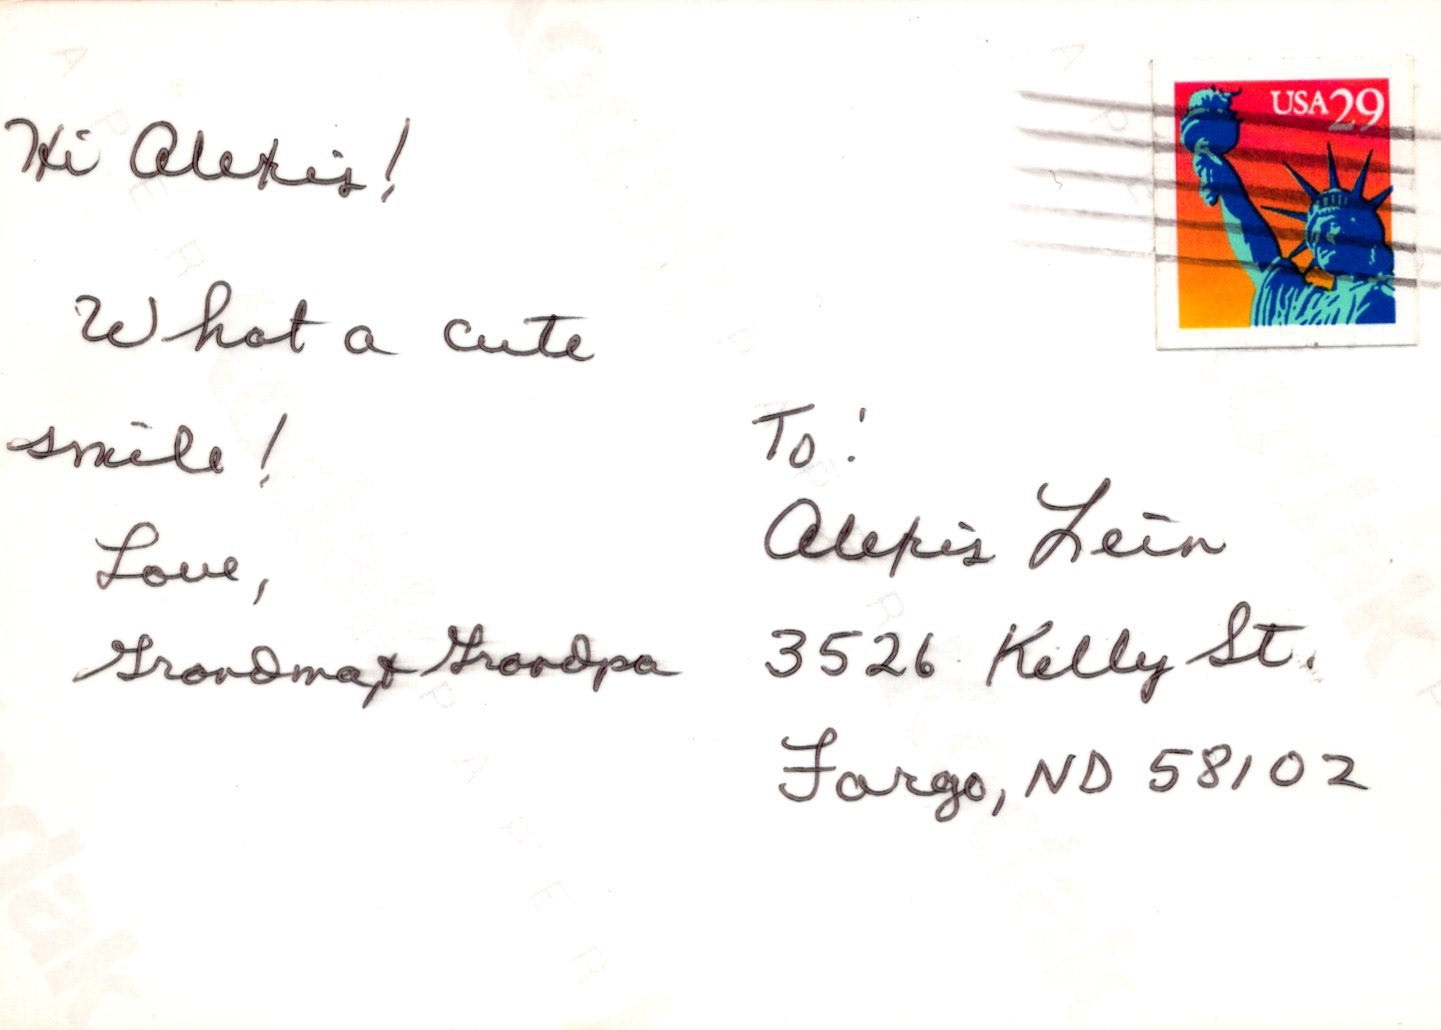 Hi Alexis!
What a cute
smile!
Love,
Grandma & Grandpa
USA 29
To:
Alexis Lein
3526 Kelly St.
Fargo, ND 58102